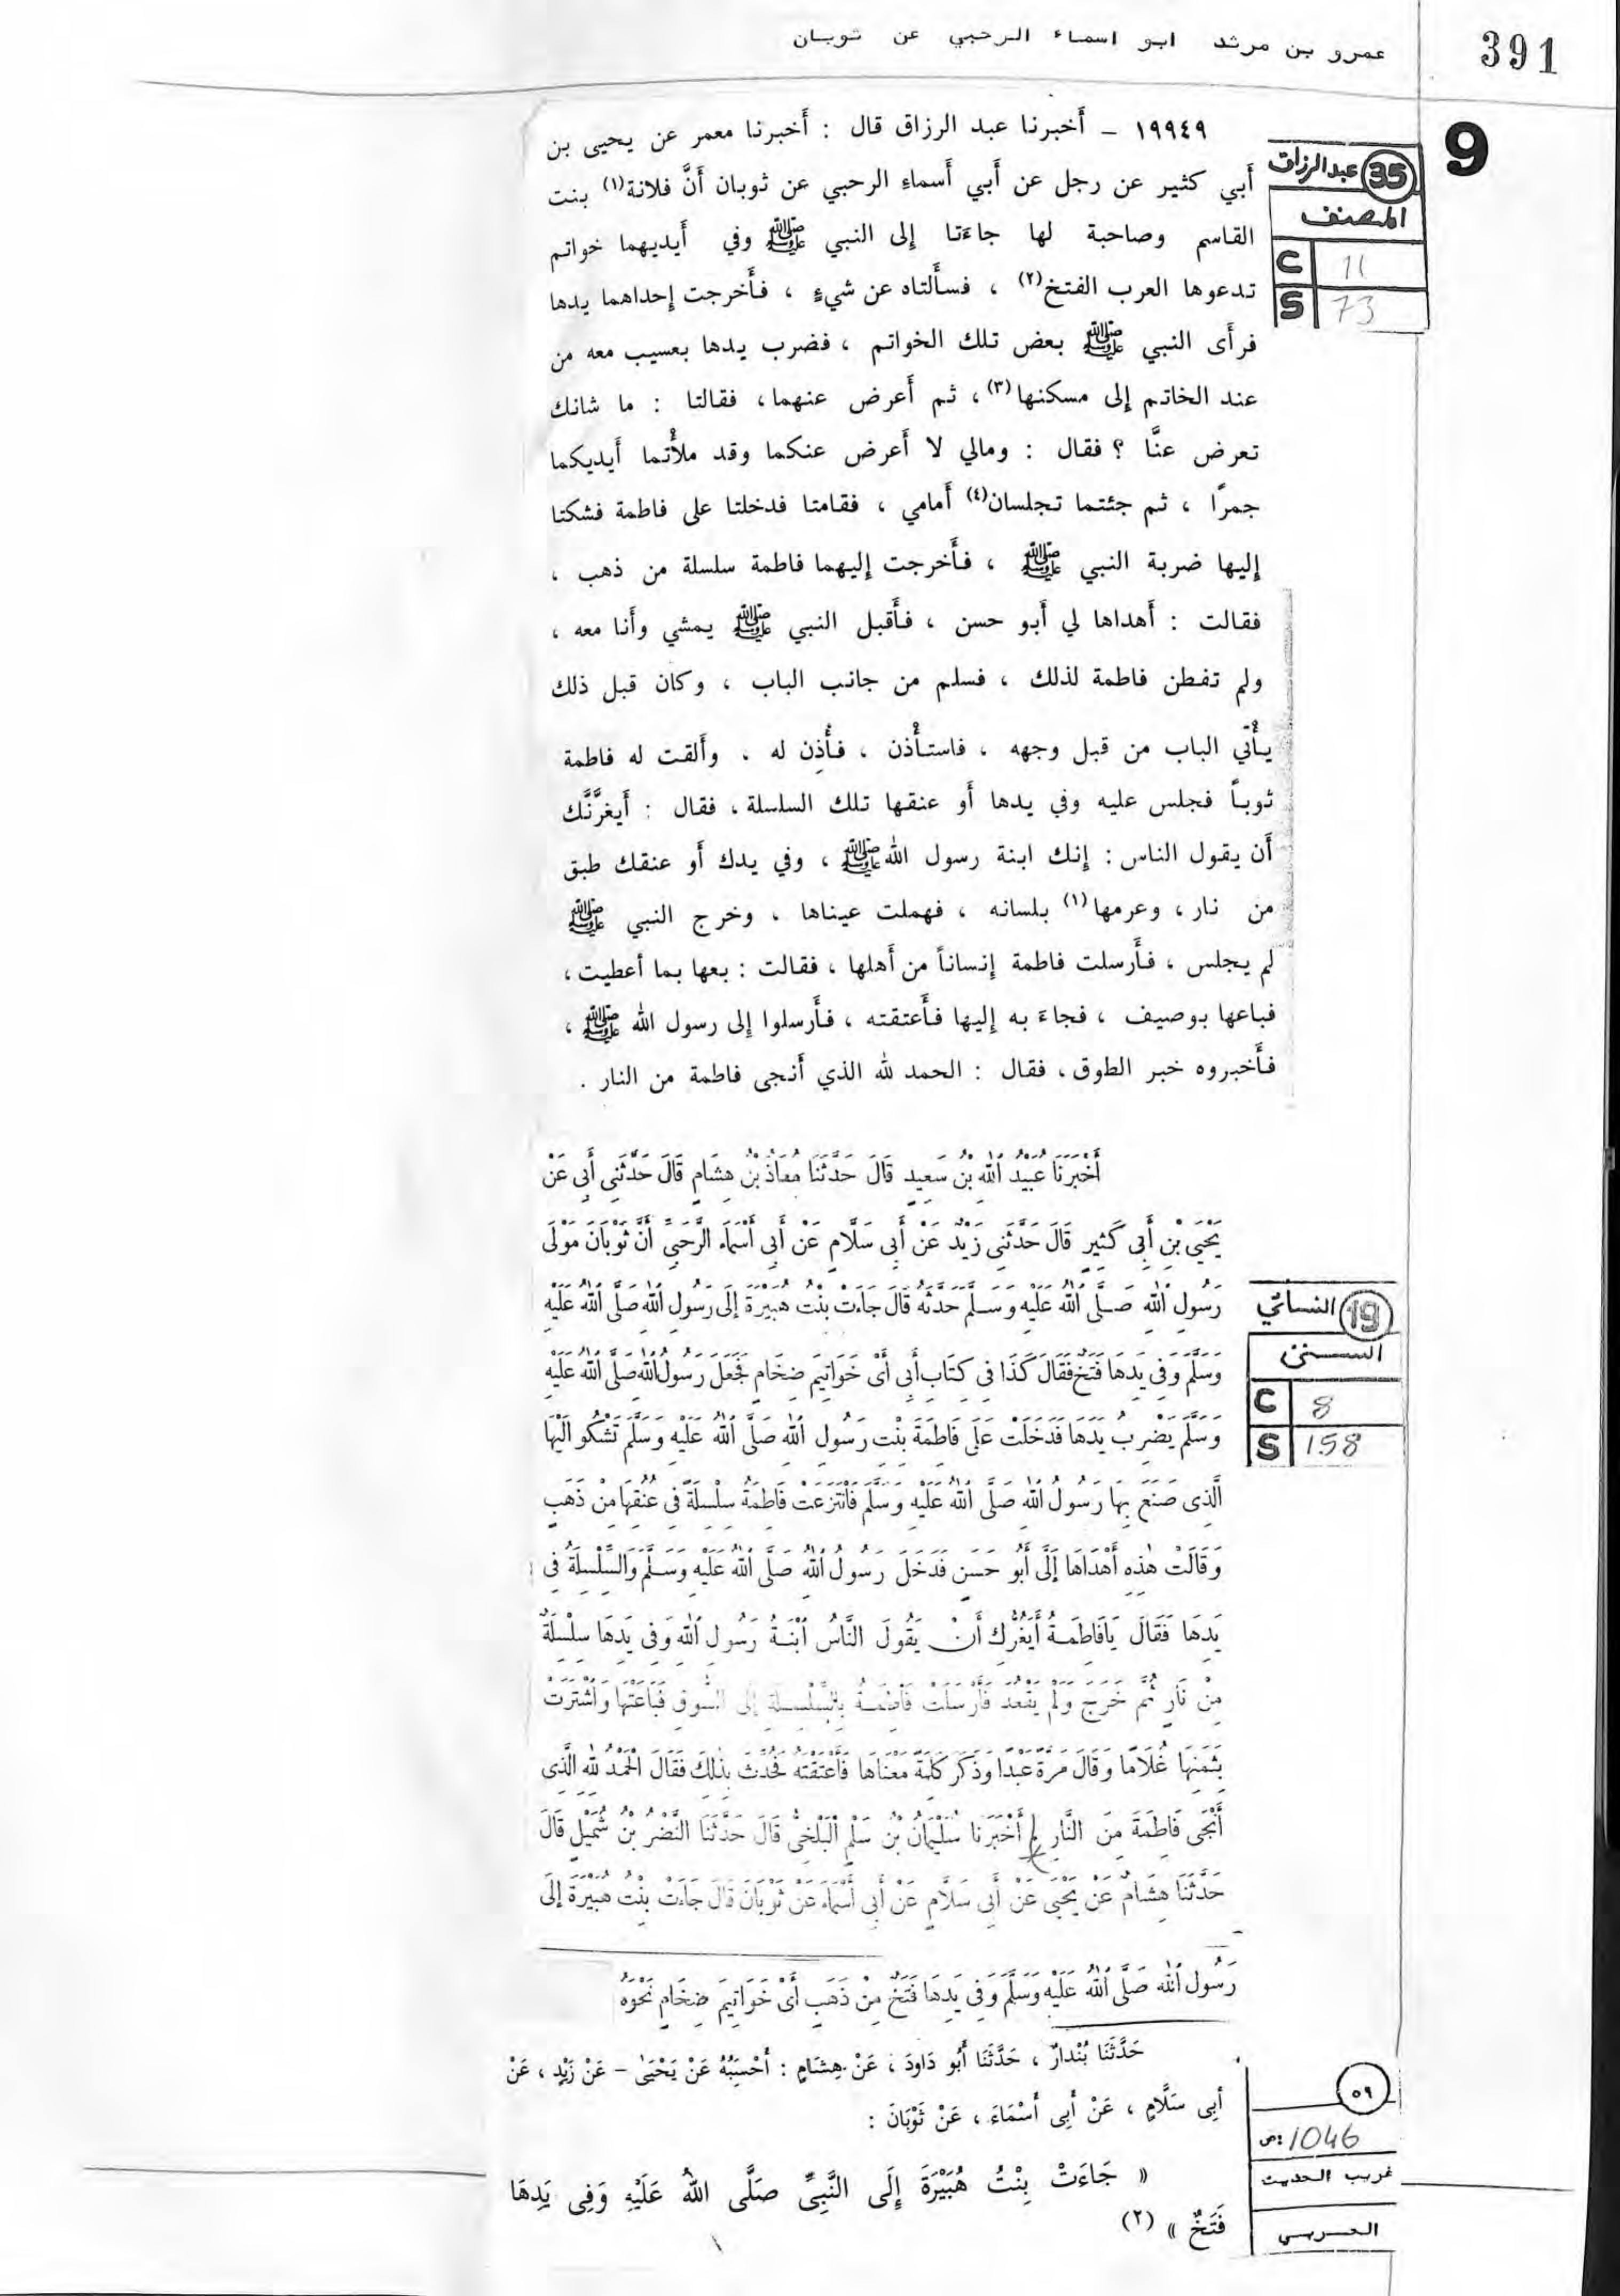 عمرو بن مرثد ابو اسماء الرحبي عن ثوبان
391
9
١٩٩٤٩ – أَخبرنا عبد الرزاق قال : أَخبرنا معمر عن يحيى بن
أَبي كثير عن رجل عن أَبي أَسماءِ الرحبي عن ثوبان أَنَّ فلانة(١) بنت
القاسم وصاحبة لها جاءَتا إلى النبي ﷺ وفي أَيديهما خواتم
تدعوها العرب الفتخ(٢) ، فسأَلتاه عن شيءٍ ، فأَخرجت إحداهما يدها
فرأَى النبي ﷺ بعض تلك الخواتم ، فضرب يدها بعسيب معه من
عند الخاتم إلى مسكنها(٣)، ثم أَعرض عنهما، فقالتا : ما شانك
تعرض عنَّا ؟ فقال : ومالي لا أَعرض عنكما وقد ملأْتما أَيديكما
جمرًا ، ثم جئتما تجلسان(٤) أَمامي ، فقامتا فدخلتا على فاطمة فشكتا
إليها ضربة النبي ﷺ ، فأَخرجت إليهما فاطمة سلسلة من ذهب ،
فقالت : أَهداها لي أَبو حسن ، فأَقبل النبي ﷺ يمشي وأَنا معه ،
ولم تفطن فاطمة لذلك ، فسلم من جانب الباب ، وكان قبل ذلك
يأْتي الباب من قبل وجهه ، فاستأْذن ، فأُذِن له ، وأَلقت له فاطمة
ثوباً فجلس عليه وفي يدها أَو عنقها تلك السلسلة ، فقال : أَيغرَّنَّك
أَن يقول الناس : إنك ابنة رسول الله ﷺ ، وفي يدك أَو عنقك طبق
من نار ، وعرمها(١) بلسانه ، فهملت عيناها ، وخرج النبي ﷺ
لم يجلس ، فأَرسلت فاطمة إنساناً من أَهلها ، فقالت : بعها بما أعطيت ،
فباعها بوصيف ، فجاءَ به إليها فأَعتقته ، فأَرسلوا إلى رسول الله ﷺ ،
فأَخبروه خبر الطوق ، فقال : الحمد لله الذي أَنجى فاطمة من النار .
35 عبدالرزاق
المصنف
C 11
S 73
أَخْبَرَنَا عُبَيْدُ اللهِ بْنُ سَعِيدٍ قَالَ حَدَّثَنَا مُعَاذُ بْنُ هِشَامٍ قَالَ حَدَّثَنِى أَبِى عَنْ
يَحْيَى بْنِ أَبِى كَثِيرٍ قَالَ حَدَّثَنِى زَيْدٌ عَنْ أَبِى سَلَّامٍ عَنْ أَبِى أَسْمَاءَ الرَّحَبِيِّ أَنَّ ثَوْبَانَ مَوْلَى
رَسُولِ اللهِ صَلَّى اللهُ عَلَيْهِ وَسَلَّمَ حَدَّثَهُ قَالَ جَاءَتْ بِنْتُ هُبَيْرَةَ إِلَى رَسُولِ اللهِ صَلَّى اللهُ عَلَيْهِ
وَسَلَّمَ وَفِى يَدِهَا فَتَخٌ فَقَالَ كَذَا فِى كِتَابِ أَبِى أَىْ خَوَاتِيمَ ضِخَامٍ فَجَعَلَ رَسُولُ اللهِ صَلَّى اللهُ عَلَيْهِ
وَسَلَّمَ يَضْرِبُ يَدَهَا فَدَخَلَتْ عَلَى فَاطِمَةَ بِنْتِ رَسُولِ اللهِ صَلَّى اللهُ عَلَيْهِ وَسَلَّمَ تَشْكُو اِلَيْهَا
الَّذِى صَنَعَ بِهَا رَسُولُ اللهِ صَلَّى اللهُ عَلَيْهِ وَسَلَّمَ فَانْتَزَعَتْ فَاطِمَةُ سِلْسِلَةً فِى عُنُقِهَا مِنْ ذَهَبٍ
وَقَالَتْ هٰذِهِ أَهْدَاهَا إِلَىَّ أَبُو حَسَنٍ فَدَخَلَ رَسُولُ اللهِ صَلَّى اللهُ عَلَيْهِ وَسَلَّمَ وَالسِّلْسِلَةُ فِى
يَدِهَا فَقَالَ يَافَاطِمَةُ أَيَغُرُّكِ أَنْ يَقُولَ النَّاسُ ابْنَةُ رَسُولِ اللهِ وَفِى يَدِهَا سِلْسِلَةٌ
مِنْ نَارٍ ثُمَّ خَرَجَ وَلَمْ يَقْعُدْ فَأَرْسَلَتْ فَاطِمَةُ بِالسِّلْسِلَةِ إِلَى السُّوقِ فَبَاعَتْهَا وَاشْتَرَتْ
بِثَمَنِهَا غُلَامًا وَقَالَ مَرَّةً عَبْدًا وَذَكَرَ كَلِمَةً مَعْنَاهَا فَأَعْتَقَتْهُ فَحُدِّثَ بِذٰلِكَ فَقَالَ الْحَمْدُ لِلهِ الَّذِى
أَنْجَى فَاطِمَةَ مِنَ النَّارِ أَخْبَرَنَا سُلَيْمَانُ بْنُ سَلْمٍ الْبَلْخِىُّ قَالَ حَدَّثَنَا النَّضْرُ بْنُ شُمَيْلٍ قَالَ
حَدَّثَنَا هِشَامٌ عَنْ يَحْيَى عَنْ أَبِى سَلَّامٍ عَنْ أَبِى أَسْمَاءَ عَنْ ثَوْبَانَ قَالَ جَاءَتْ بِنْتُ هُبَيْرَةَ إِلَى
رَسُولِ اللهِ صَلَّى اللهُ عَلَيْهِ وَسَلَّمَ وَفِى يَدِهَا فَتَخٌ مِنْ ذَهَبٍ أَىْ خَوَاتِيمَ ضِخَامٍ نَحْوَهُ
19 النسائي
السنن
C 8
S 158
حَدَّثَنَا بُنْدارٌ ، حَدَّثَنَا أَبُو دَاودَ ، عَنْ هِشَامٍ : أَحْسَبُهُ عَنْ يَحْيَىٰ – عَنْ زَيْدٍ ، عَنْ
أَبِى سَلَّامٍ ، عَنْ أَبِى أَسْمَاءَ ، عَنْ ثَوْبَانَ :
« جَاءَتْ بِنْتُ هُبَيْرَةَ إِلَى النَّبِىِّ صَلَّى اللهُ عَلَيْهِ وَفِى يَدِهَا
فَتَخٌ » (٢)
٥٩
ص: 1046
غريب الحديث
الحربي